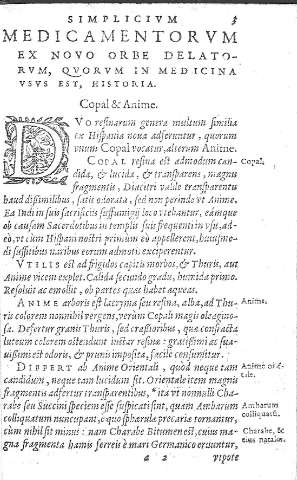 SIMPLICIVM 3
MEDICAMENTORVM
EX NOVO ORBE DELATO-
RVM, QVORVM IN MEDICINA
VSVS EST, HISTORIA.
Copal & Anime.
DVO resinarum genera multum similia
ex Hispania noua adferuntur, quorum
vnum Copal vocatur, alterum Anime.
COPAL resina est admodum can- Copal.
dida, & lucida, & transparens, magnis
fragmentis, Diacitri valde transparentis
haud dissimilibus, satis odorata, sed non perinde vt Anime.
Ea Indi in suis sacrificiis suffumigij loco vtebantur, eámque
ob causam Sacerdotibus in templis suis frequenti in vsu, ad-
eò, vt cùm Hispani nostri primùm eò appellerent, huiusmo-
di suffitibus naribus eorum admotis exciperentur.
VTILIS est ad frigidos capitis morbos, & Thuris, aut
Anime vicem explet. Calida secundo gradu, humida primo.
Resoluit ac emollit, ob partes quas habet aqueas.
ANIME arboris est lacryma seu resina, alba, ad Thu- Anime.
ris colorem nonnihil vergens, verùm Copali magis oleagino-
sa. Defertur granis Thuris, sed crassioribus, qua confracta
luteum colorem ostendunt instar resinæ: gratissimi ac sua-
uissimi est odoris, & prunis imposita, facilè consumitur.
DIFFERT ab Anime Orientali, quòd neque tam Anime oriẽ-
candidum, neque tam lucidum sit. Orientale item magnis tale.
fragmentis adfertur transparentibus, * ita vt nonnulli Cha-
rabe seu Succini speciem esse suspicati sint, quam Ambarum Ambarum
colliquatum nuncupant, è quo sphærula precariæ tornantur, colliquatũ.
cùm nihil sit minus: nam Charabe Bitumen est, cuius ma- Charabe, &
gna fragmenta hamis ferreis è mari Germanico eruuntur, eius natales.
a 2 vtpote